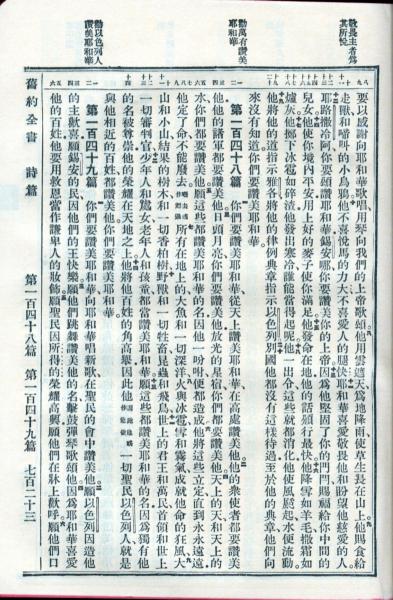 敬畏主者為
其所悅
勸萬有讚美
耶和華
勸以色列人
讚美耶和華
要以感謝向耶和華歌唱用琴向我們的上帝歌頌他用雲遮天為地降雨使草生長在山上他賜食給
走獸和啼叫的小烏鴉他不喜悅馬的力大不喜愛人的腿快耶和華喜愛敬畏他和盼望他慈愛的人
耶路撒冷阿你要頌讚耶和華錫安哪你要讚美你的上帝因為他堅固了你的門閂賜福給你中間的
兒女他使你境內平安用上好的麥子使你滿足他發命在地他的話頒行最快他降雪如羊毛撒霜如
爐灰他擲下冰雹如碎渣他發出寒冷誰能當得起呢他一出令這些就都消化他使風颳起水便流動
他將他的道指示雅各將他的律例典章指示以色列別國他都沒有這樣待過至於他的典章他們向
來沒有知道你們要讚美耶和華
第一百四十八篇 你們要讚美耶和華從天上讚美耶和華在高處讚美他他的衆使者都要讚美
他他的諸軍都要讚美他日頭月亮你們要讚美他放光的星宿你們都要讚美他天上的天和天上的
水你們都要讚美他願這些都讚美耶和華的名因他一吩咐便都造成他將這些立定直到永永遠遠
他定了命不能廢去所有在地上的大魚和一切深洋火與冰雹雪和霧氣成就他命的狂風大
山和小山結果的樹木和一切香柏樹野獸和一切牲畜昆蟲和飛鳥世上的君王和萬民首領和世上
一切審判官少年人和處女老年人和孩童都當讚美耶和華願這些都讚美耶和華的名因為獨有他
的名被尊崇他的榮耀在天地之上他將他百姓的角高舉因此他一切聖民以色列人就是
與他相近的百姓都讚美他你們要讚美耶和華
第一百四十九篇 你們要讚美耶和華向耶和華唱新歌在聖民的會中讚美他願以色列因造他
的主歡喜願錫安的民因他們的王快樂願他們跳舞讚美他的名擊鼓彈琴歌頌他因為耶和華喜愛
他的百姓他要用救恩當作謙卑人的妝飾願聖民因所得的榮耀高興願他們在牀上歡呼願他們口
舊約全書 詩篇 第一百四十八篇 第一百四十九篇 七百二十三